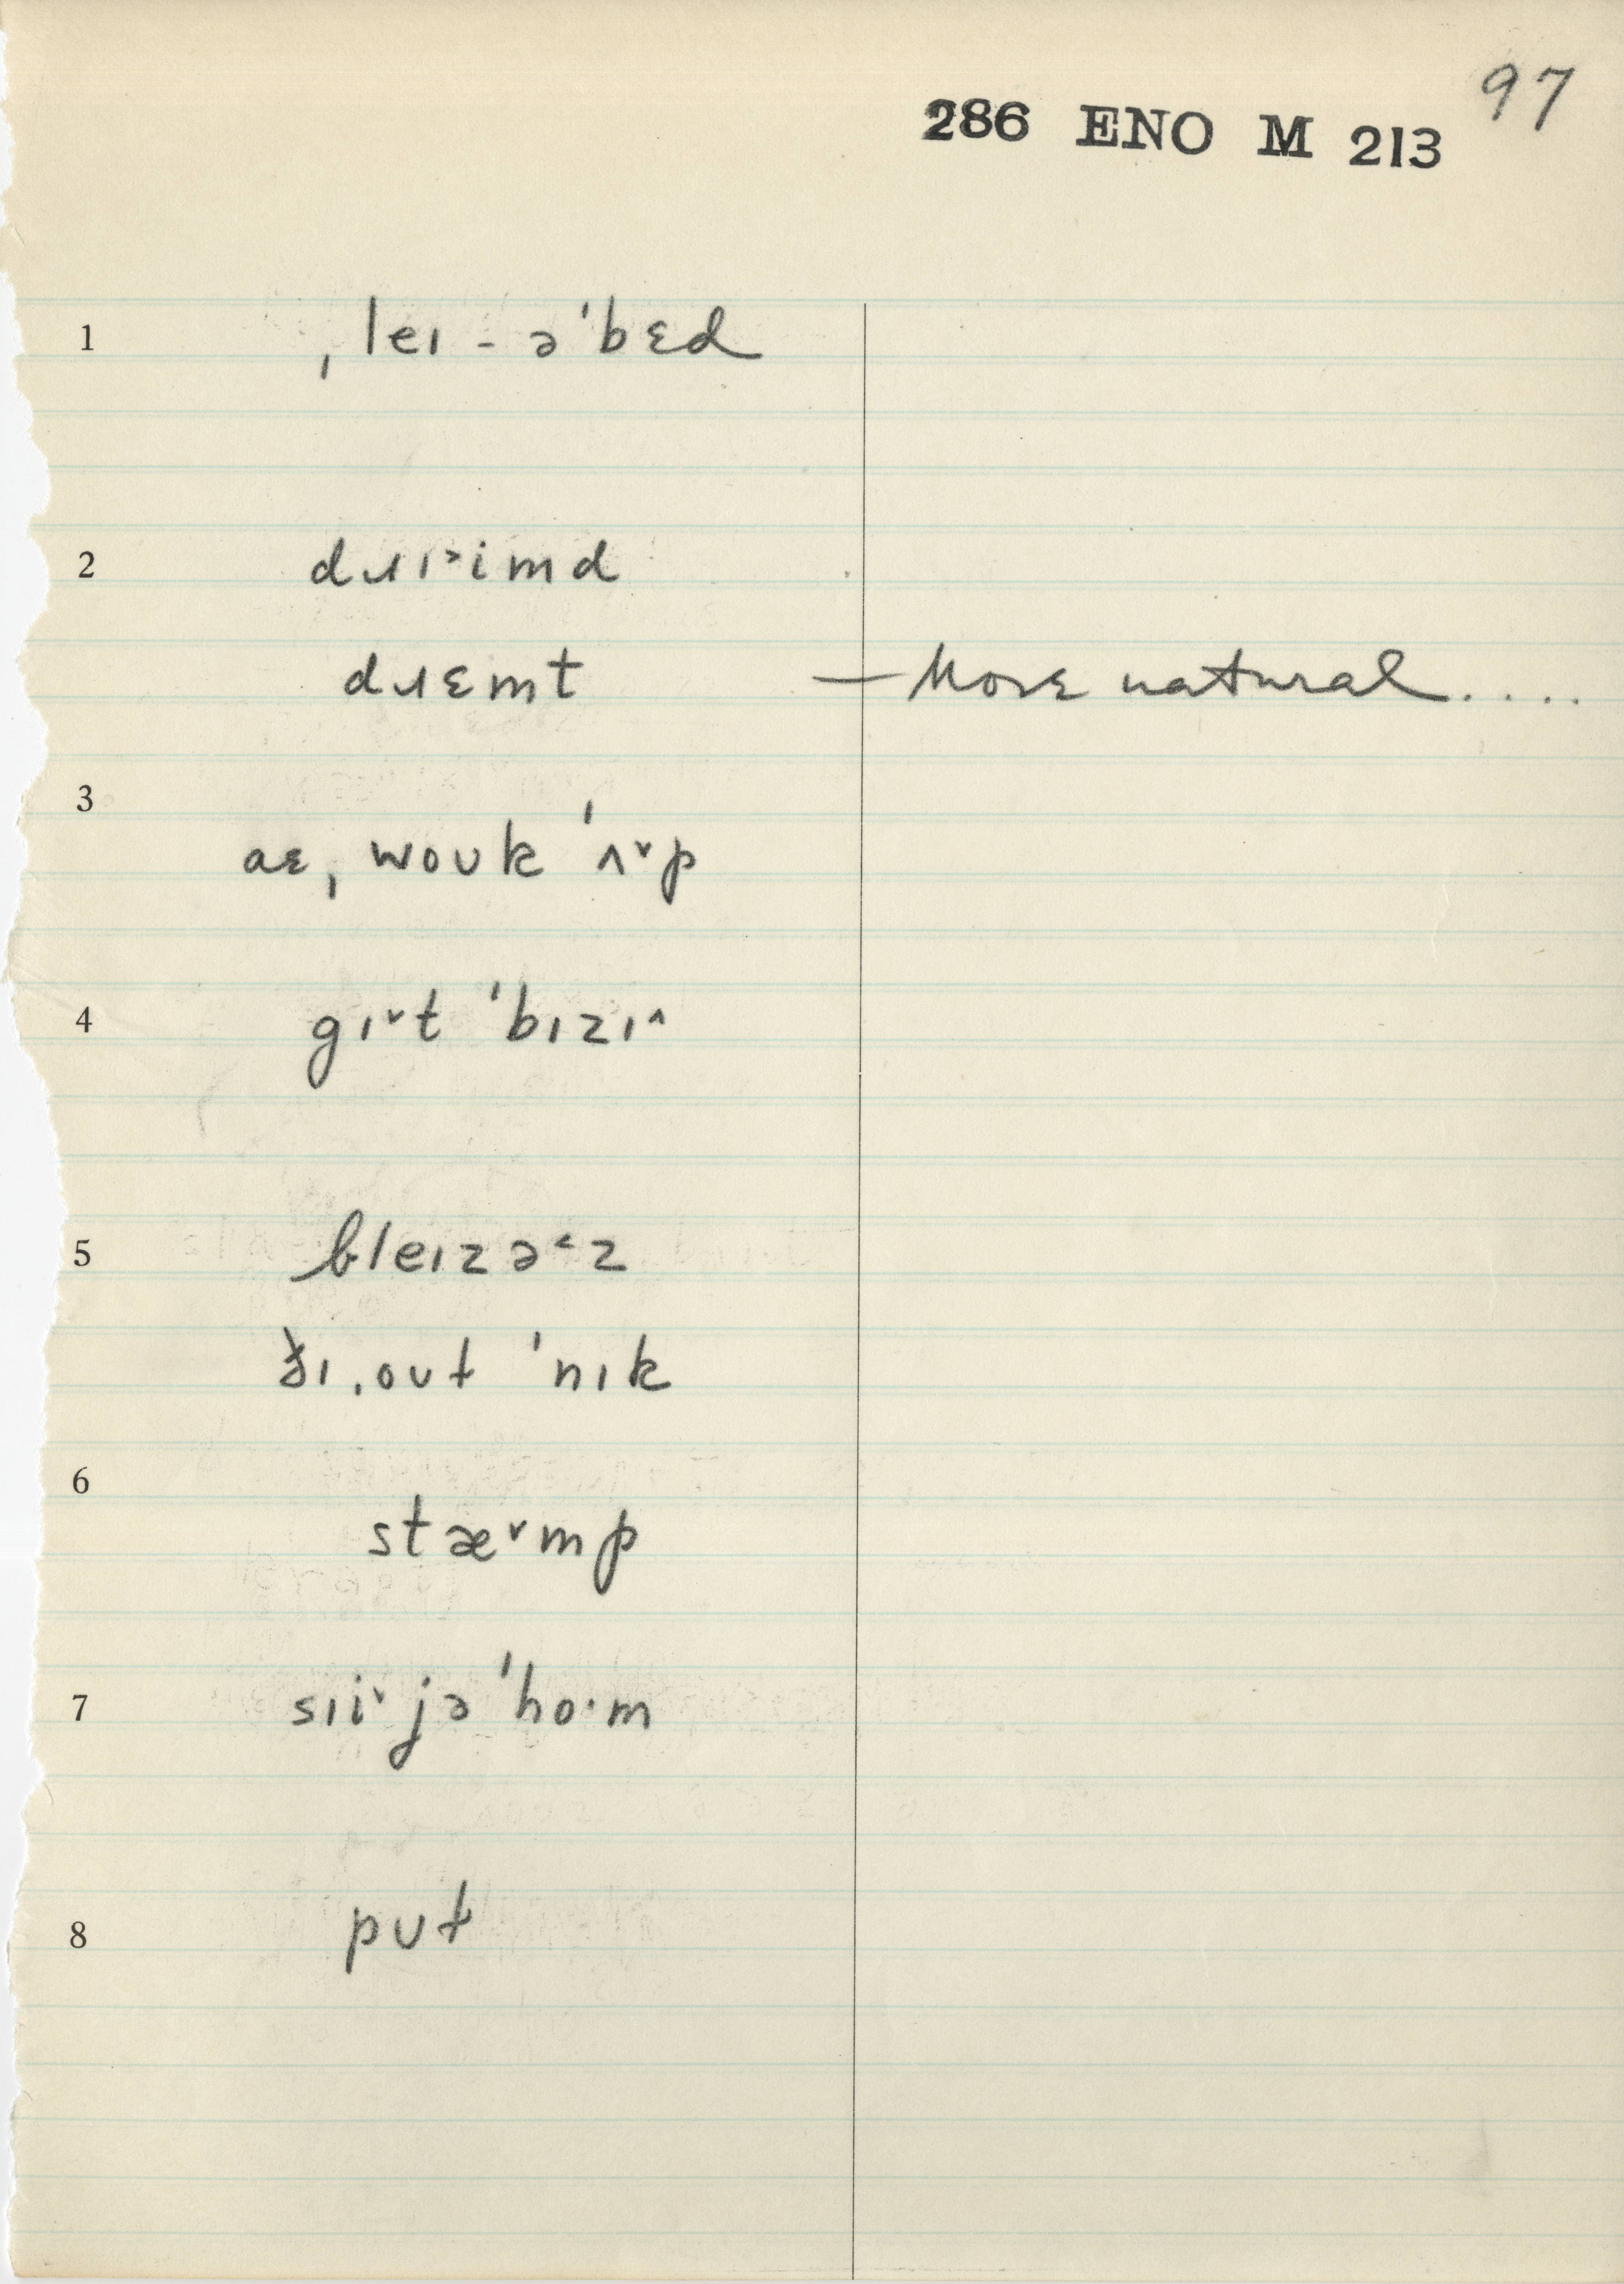 97
286 ENO M 213
1 ˌleɪ - ə ˈbɛd
2 dɹɪ˃imd
dɹɛmt — More natural.....
3 aɛ ˌwoʊk ˈʌ˅p
4 gɪ˅t ˈbɪzɪ˄
5 bleɪzə˂z
ðɪ ˌoʊt ˈnɪk
6 stæ˅mp
7 sɪi˅ jə ˈho·m
8 pʊt